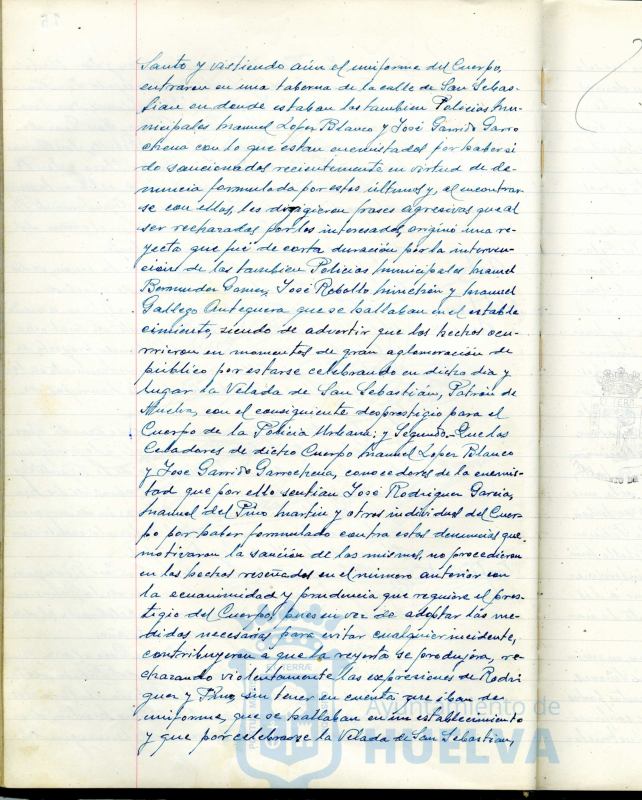 Santo y vistiendo aún el uniforme del Cuerpo,
entraron en una taberna de la calle de San Sebas-
tian en donde estaban los tambien Policias Mu-
nicipales Manuel Lopez Blanco y José Garrido Garro
chena con lo que estan enemistados por haber si
do sancionados recientemente en virtud de de-
nuncia formulada por estos últimos y, al encontrar
se con ellos, les dirigieron frases agresivas que al
ser rechazadas por los interesados, originó una re-
yerta que fué de corta duración por la interven-
ción de los tambien Policias Municipales Manuel
Bermudez Gomez, José Rebollo Minchón y Manuel
Gallego Antequera que se hallaban en el estable
cimiento, siendo de advertir que los hechos ocu-
rrieron en momentos de gran aglomeración de
público por estarse celebrando en dicho dia y
lugar la Velada de San Sebastián, Patrón de
Huelva, con el consiguiente desprestigio para el
Cuerpo de la Policia Urbana; y Segundo.- Que los
Celadores de dicho Cuerpo Manuel Lopez Blanco
y Jose Garrido Garrochena, conocedores de la enemis-
tad que por ello sentian José Rodriguez Garcia,
Manuel del Pino Martin y otros individuos del Cuer-
po por haber formulado contra estos denuncias que
motivaron la sanción de los mismos, no procedieron
en los hechos reseñados en el número anterior con
la ecuanimidad y prudencia que requiere el pres-
tigio del Cuerpo, pues en vez de adoptar las me-
didas necesarias para evitar cualquier incidente,
contribuyeron a que la reyerta se produjera, re-
chazando violentamente las expresiones de Rodri
guez y Pino, sin tener en cuenta que iban de
uniforme, que se hallaban en un establecimiento
y que por celebrarse la Velada de San Sebastian,
Ayuntamiento de
HUELVA